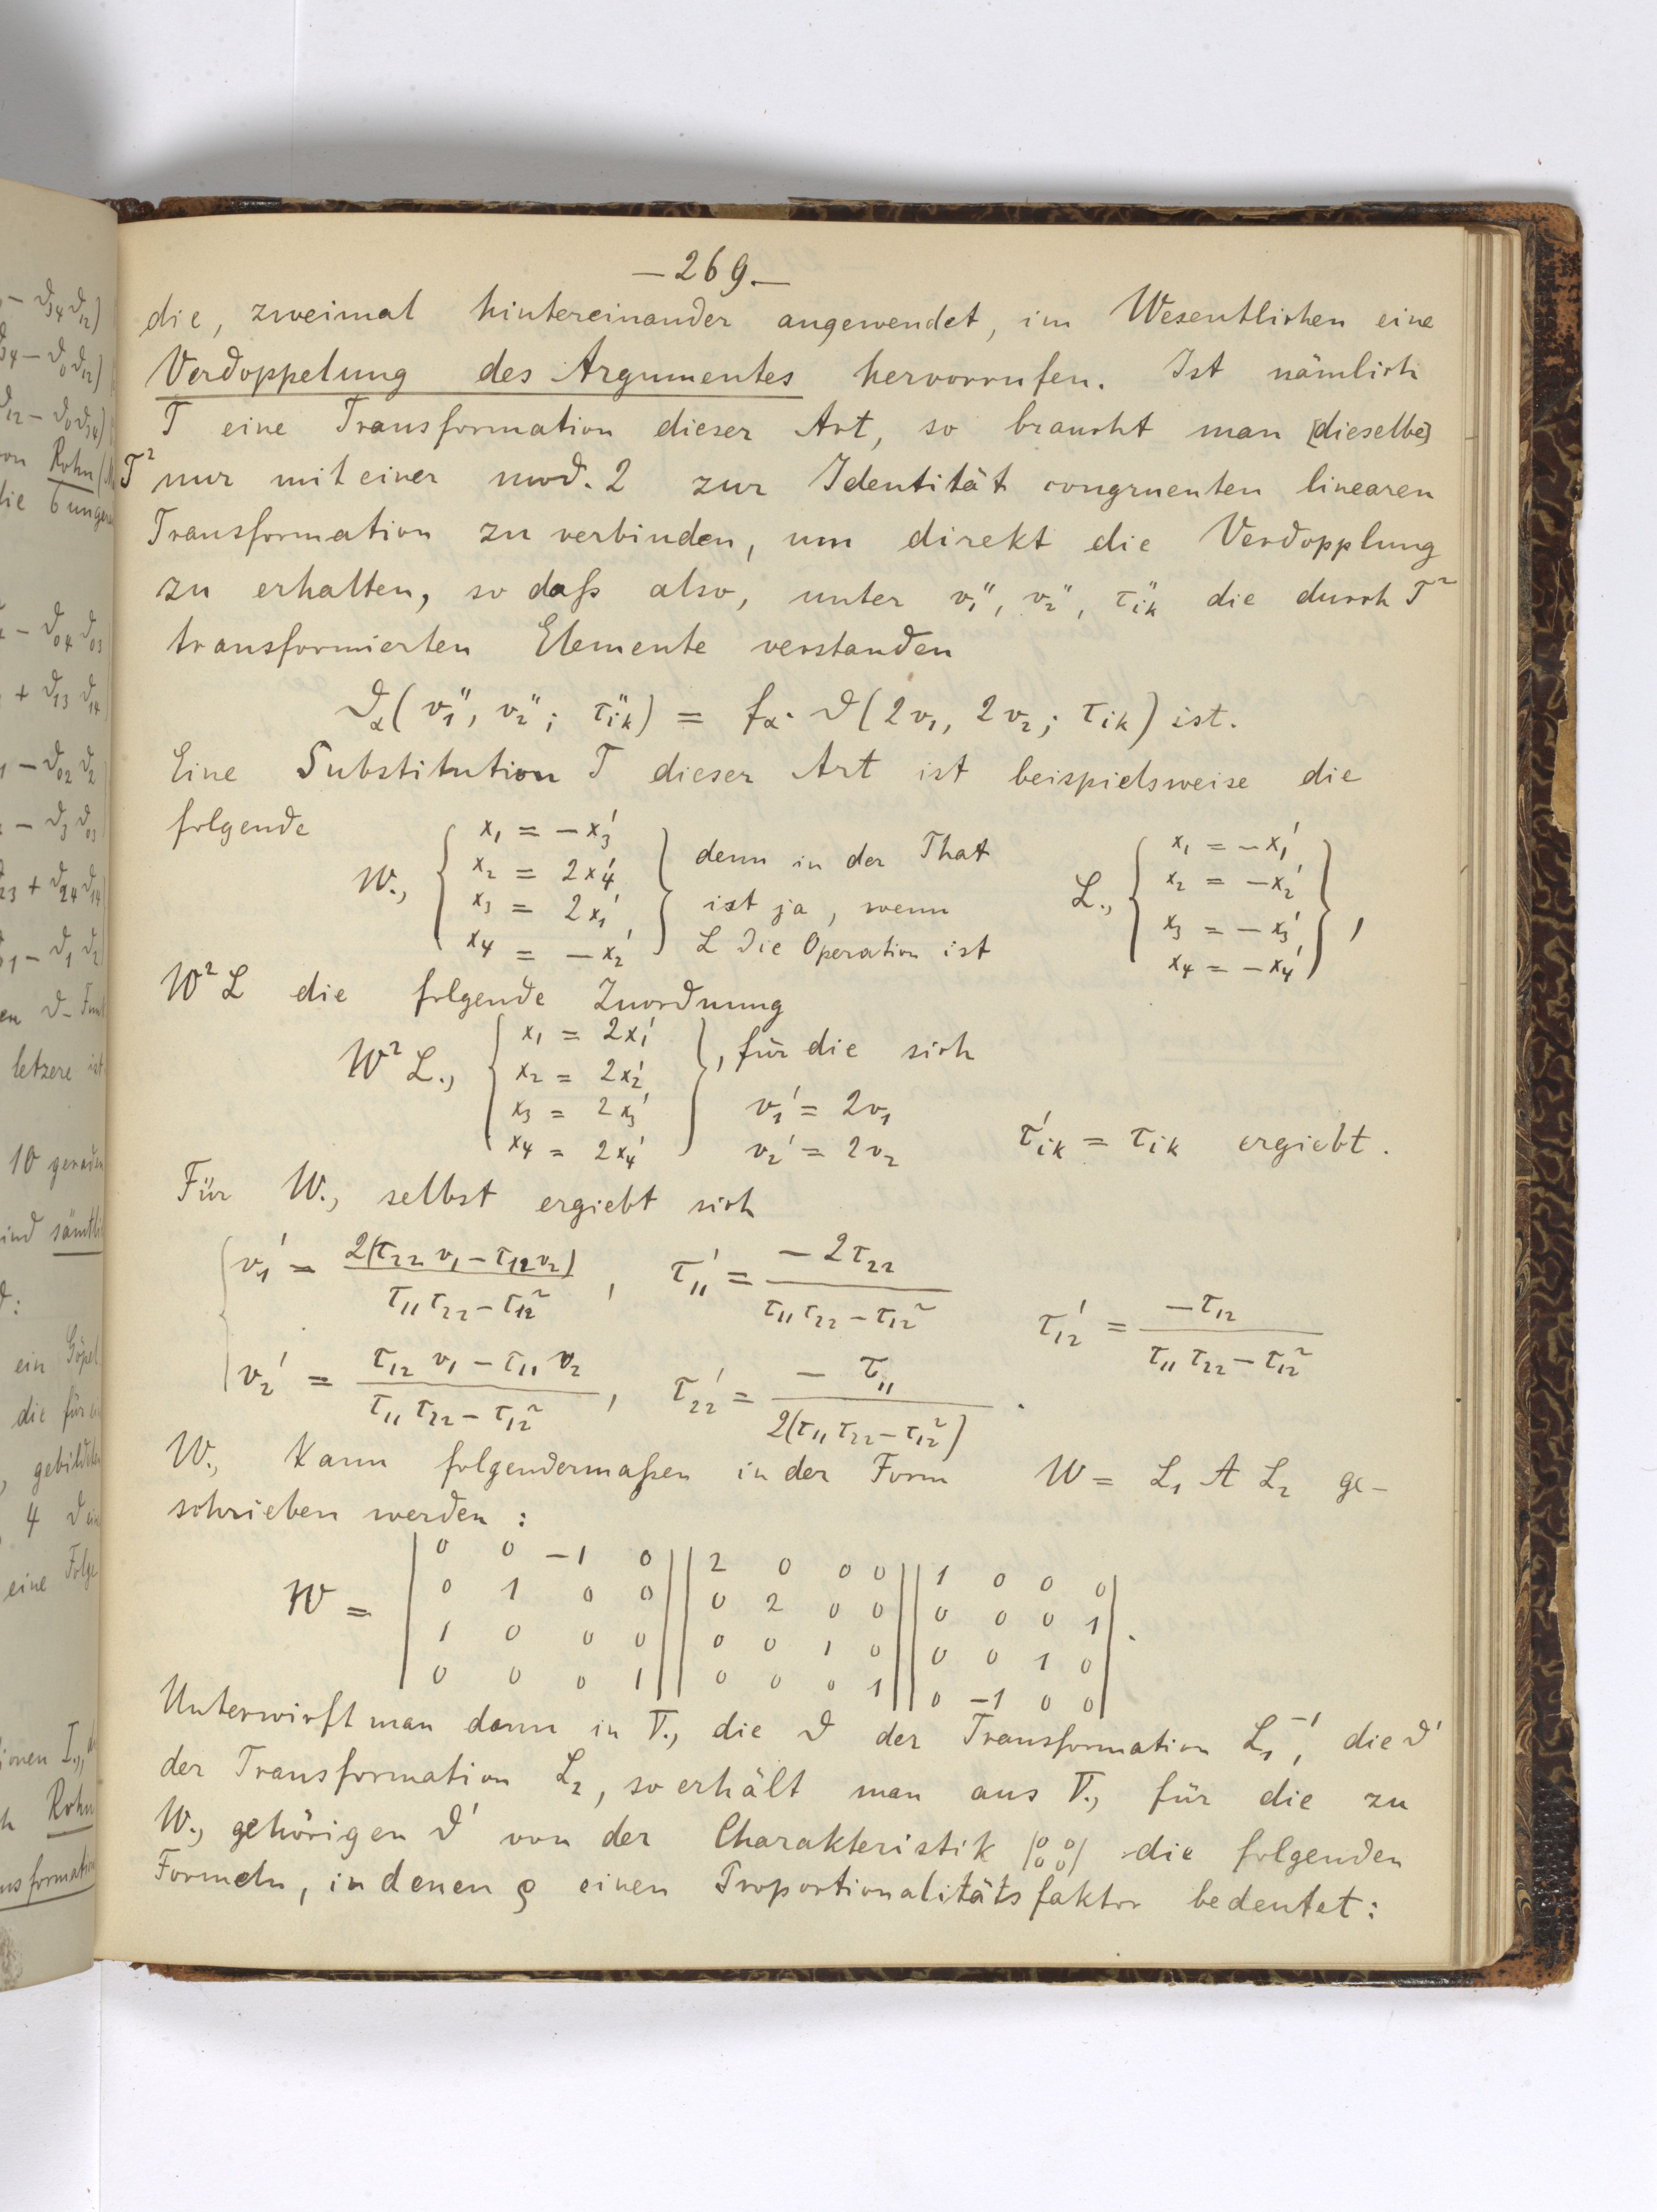 — 269. —
die, zweimal hintereinander angewendet, im Wesentlichen eine
Verdoppelung des Argumentes hervorrufen. Ist nämlich
T eine Transformation dieser Art, so braucht man [dieselbe]
T² nur mit einer mod. 2 zur Identität congruenten linearen
Transformation zu verbinden, um direkt die Verdopplung
zu erhalten, so daß also, unter v₁'', v₂'', τ''ik die durch T²
transformierten Elemente verstanden
ϑα(v₁'', v₂''; τ''ik) = fα · ϑ(2v₁, 2v₂; τik) ist.
Eine Substitution T dieser Art ist beispielsweise die
folgende
W., { x₁ = −x₃'
x₂ = 2x₄'
x₃ = 2x₁'
x₄ = −x₂' }
denn in der That
ist ja, wenn
L die Operation ist
L., { x₁ = −x₁'
x₂ = −x₂'
x₃ = −x₃'
x₄ = −x₄' },
W²L die folgende Zuordnung
W²L., { x₁ = 2x₁'
x₂ = 2x₂'
x₃ = 2x₃'
x₄ = 2x₄' }
, für die sich
v₁' = 2v₁
v₂' = 2v₂
τ'ik = τik ergiebt.
Für W., selbst ergiebt sich
{ v₁' = 2(τ₂₂v₁ − τ₁₂v₂) / τ₁₁τ₂₂ − τ₁₂² , τ₁₁' = −2τ₂₂ / τ₁₁τ₂₂ − τ₁₂² τ₁₂' = −τ₁₂ / τ₁₁τ₂₂ − τ₁₂²
v₂' = τ₁₂v₁ − τ₁₁v₂ / τ₁₁τ₂₂ − τ₁₂² , τ₂₂' = −τ₁₁ / 2(τ₁₁τ₂₂ − τ₁₂²) .
W., kann folgendermaßen in der Form W = L₁ A L₂ ge-
schrieben werden:
W =
| 0 0 −1 0 | | 2 0 0 0 | | 1 0 0 0 |
| 0 1 0 0 | | 0 2 0 0 | | 0 0 0 1 |
| 1 0 0 0 | | 0 0 1 0 | | 0 0 1 0 | .
| 0 0 0 1 | | 0 0 0 1 | | 0 −1 0 0 |
Unterwirft man dann in V., die ϑ der Transformation L₁⁻¹, die ϑ'
der Transformation L₂, so erhält man aus V., für die zu
W., gehörigen ϑ' von der Charakteristik |0 0 / 0 0| die folgenden
Formeln, in denen ϱ einen Proportionalitätsfaktor bedeutet: